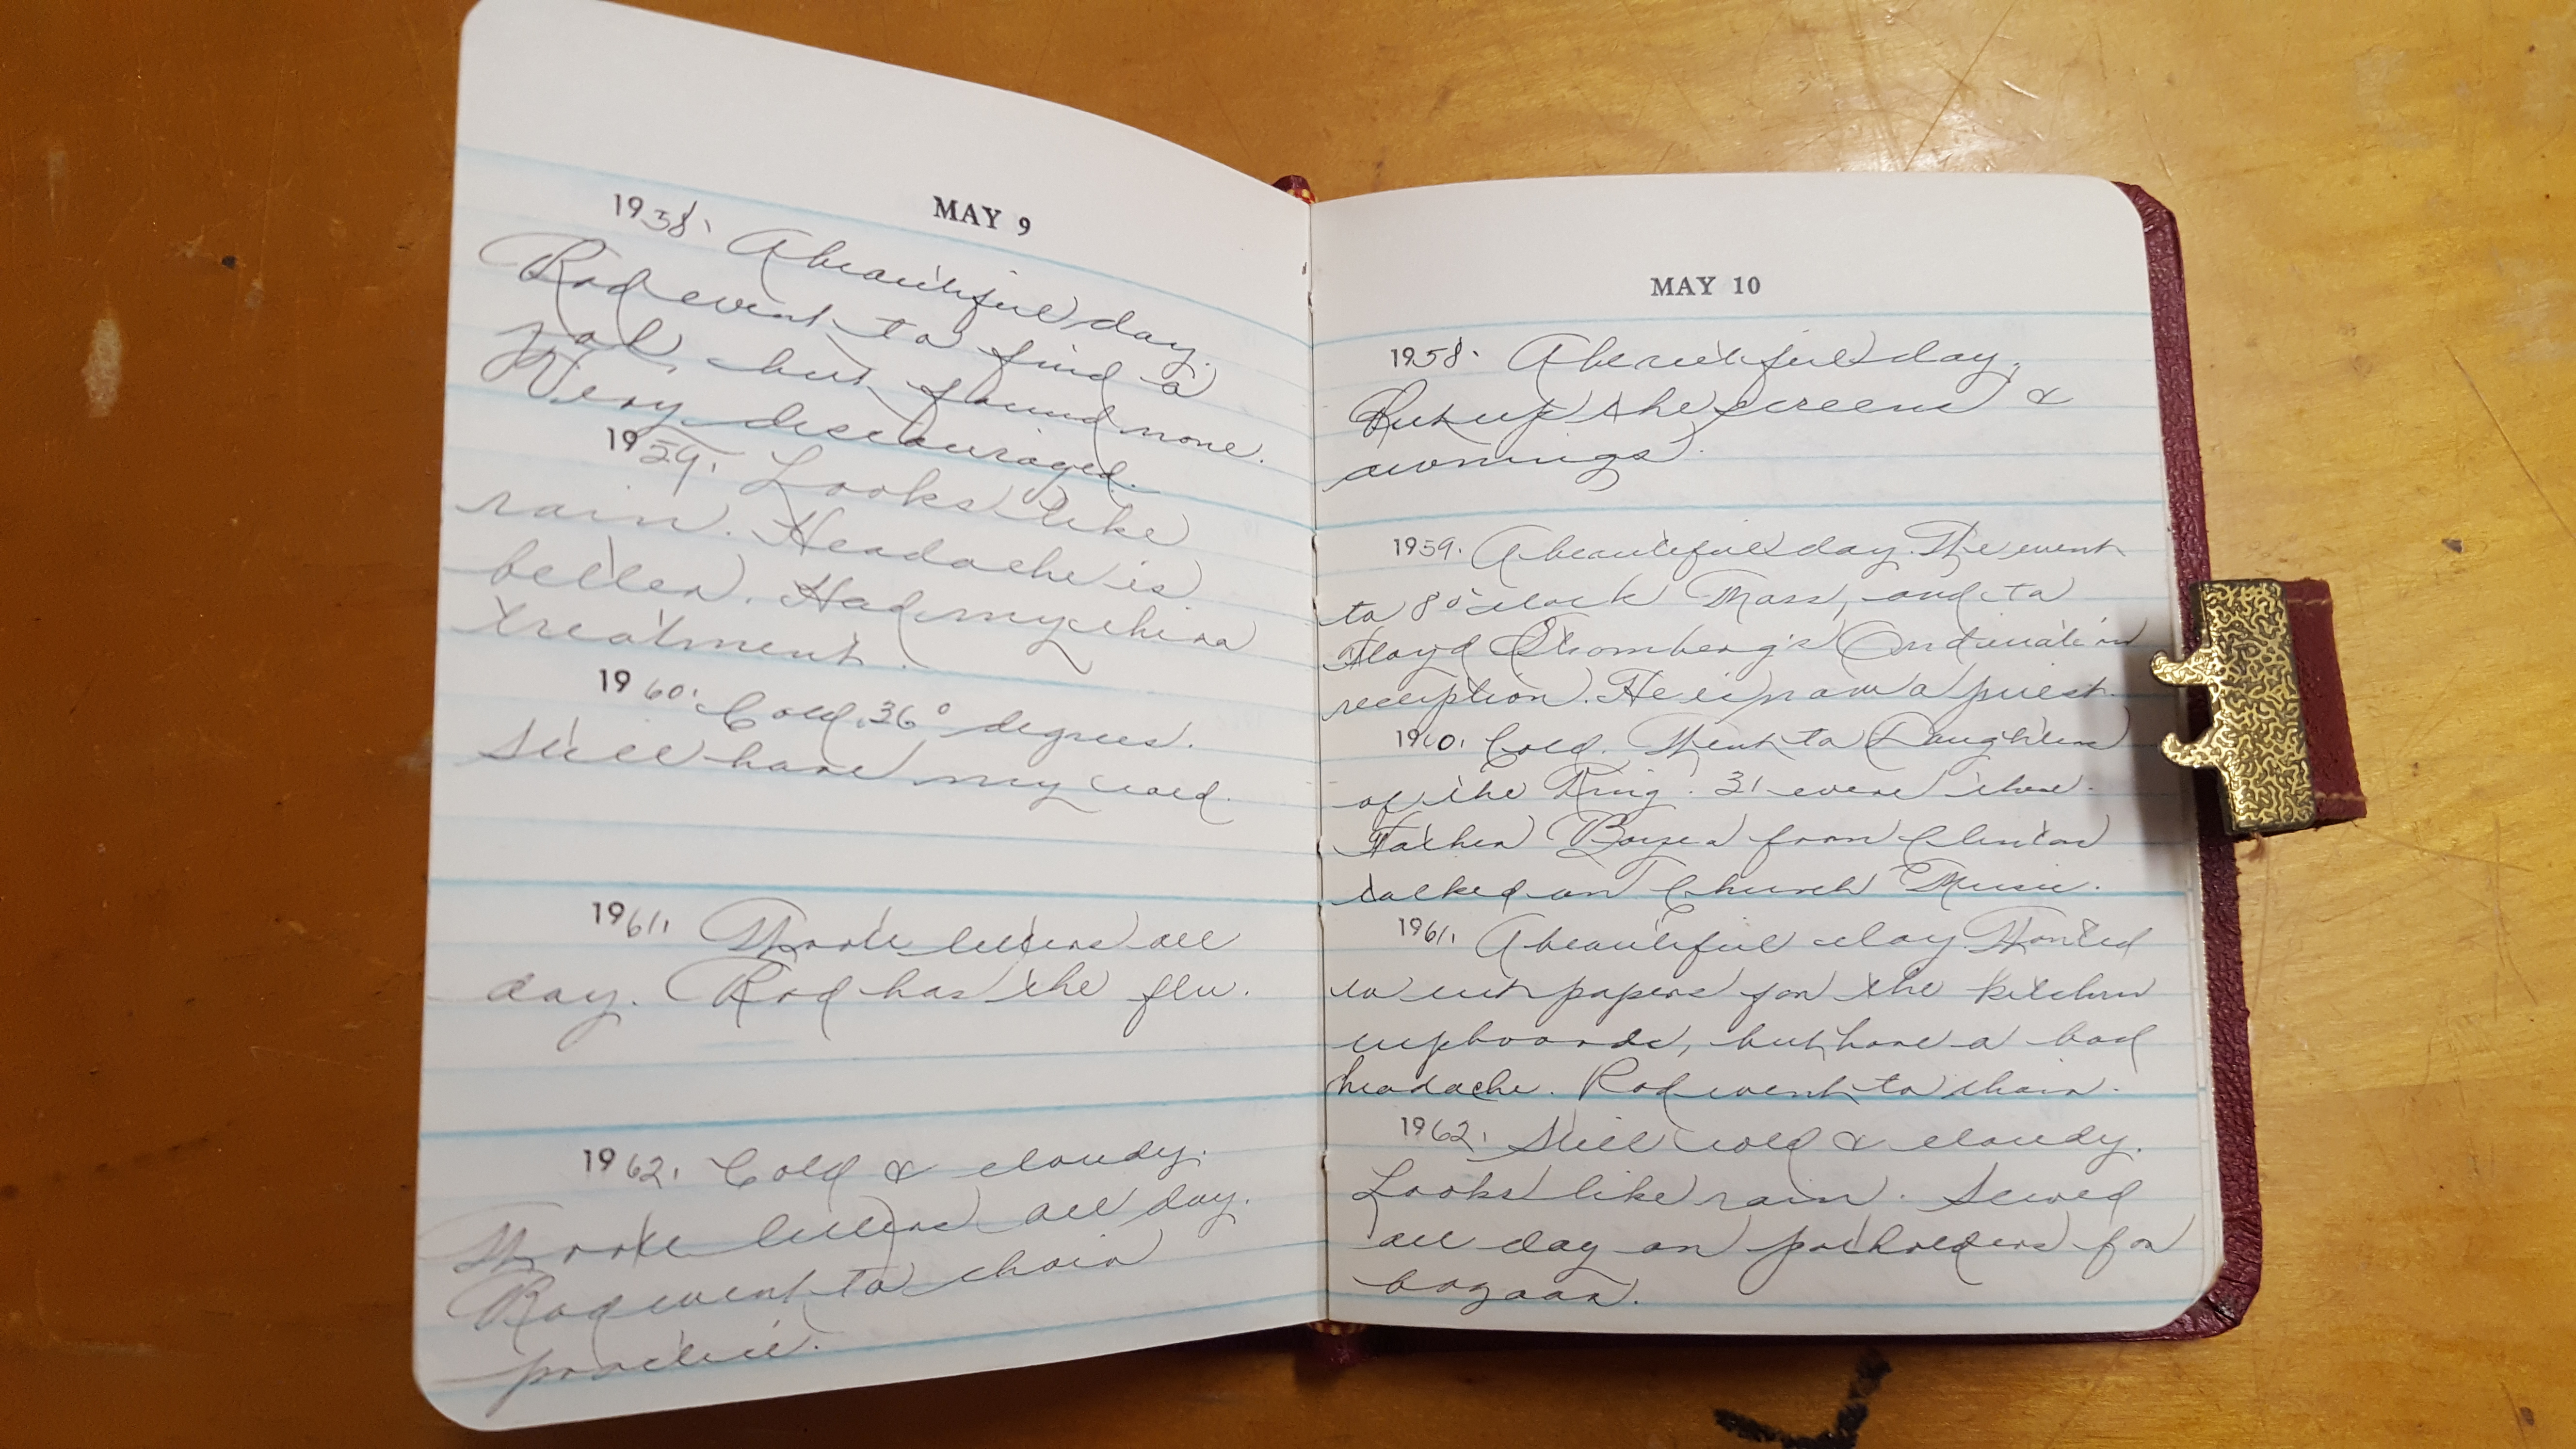 MAY 9
1958. A beautiful day.
Rod went to find a
job, but found none.
Very discouraged.
1959. Looks like
rain. Headache is
better. Had my chiro
treatment.
1960. Cold, 36° degrees.
Still have my cold.
1961. Wrote letters all
day. Rod has the flu.
1962. Cold & cloudy.
Wrote letters all day.
Rod went to choir
practice.
MAY 10
1958. A beautiful day.
Put up the screens &
awnings.
1959. A beautiful day. We went
to 8 o'clock Mass, and to
Floyd Stromberg's Ordination
reception. He is now a priest.
1960. Cold. Went to Daughters
of the King. 31 were there.
Father from Clinton
talked on Church Music.
1961. A beautiful day. Wanted
to cut papers for the kitchen
cupboards, but have a bad
headache. Rod went to choir.
1962. Still cold & cloudy.
Looks like rain. Sewed
all day on potholders for
bazaar.